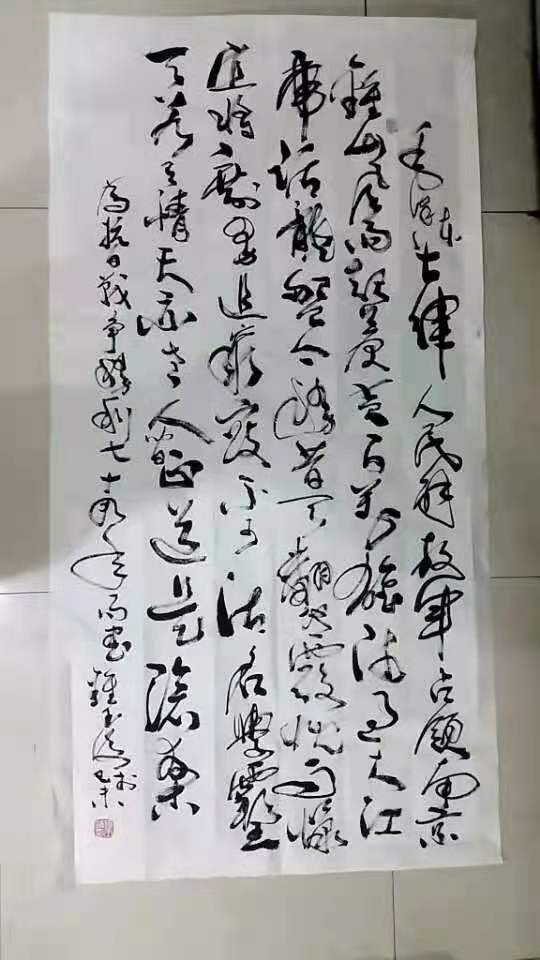 毛泽东七律人民解放军占领南京
鍾山风雨起苍黄百万雄师过大江
虎踞龍盤今勝昔天翻地覆慨而慷
宜将剩勇追穷寇不可沽名學霸王
天若有情天亦老人间正道是滄桑
为抗日戰争勝利七十周年而书 於乙未